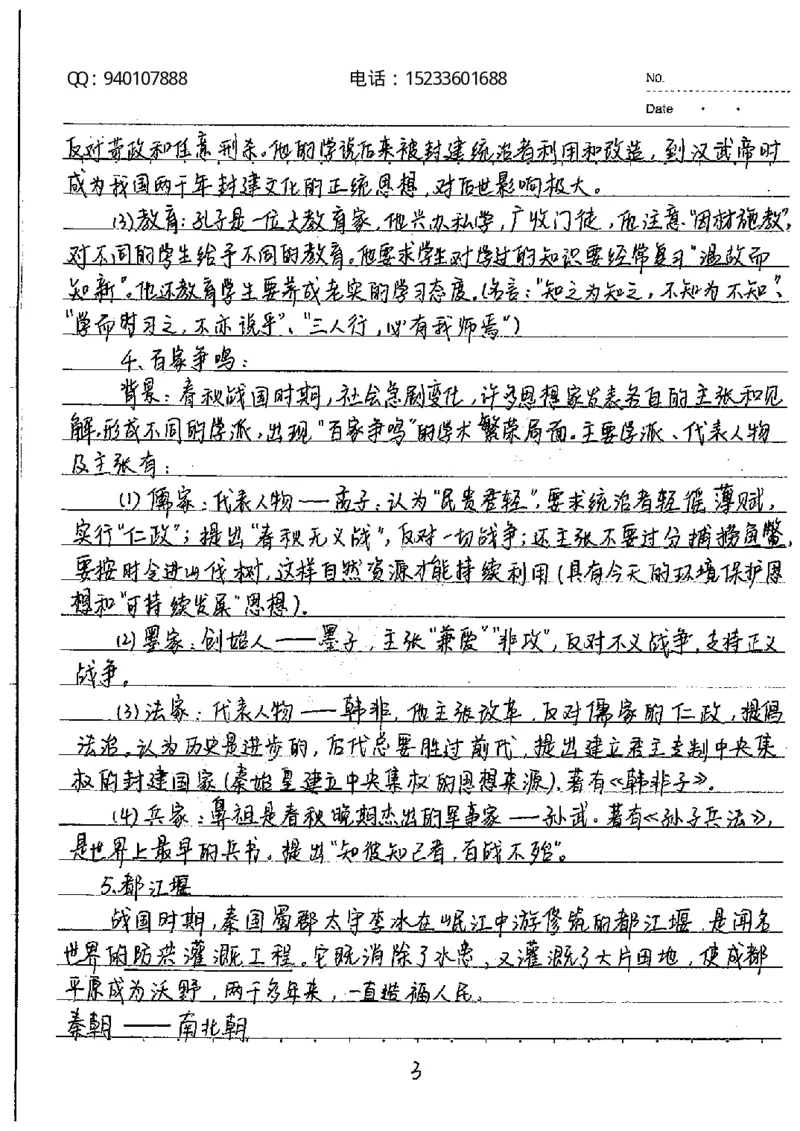 QQ：940107888
电话：15233601688
No.
Date
反对苛政和任意刑杀。他的学说后来被封建统治者利用和改造，到汉武帝时
成为我国两千年封建文化的正统思想，对后世影响极大。
(3)教育：孔子是一位大教育家，他兴办私学，广收门徒，他注意“因材施教”，
对不同的学生给予不同的教育。他要求学生对学过的知识要经常复习“温故而
知新”。他还教育学生要养成老实的学习态度。(名言：“知之为知之，不知为不知”、
“学而时习之，不亦说乎”、“三人行，必有我师焉”)
4、百家争鸣：
背景：春秋战国时期，社会急剧变化，许多思想家发表各自的主张和见
解，形成不同的学派，出现“百家争鸣”的学术繁荣局面。主要学派、代表人物
及主张有：
(1)儒家：代表人物——孟子：认为“民贵君轻”，要求统治者轻徭薄赋，
实行“仁政”；提出“春秋无义战”，反对一切战争；还主张不要过分捕捞鱼鳖，
要按时令进山伐树，这样自然资源才能持续利用(具有今天的环境保护思
想和“可持续发展”思想)。
(2)墨家：创始人——墨子，主张“兼爱”“非攻”，反对不义战争，支持正义
战争。
(3)法家：代表人物——韩非，他主张改革，反对儒家的仁政，提倡
法治。认为历史是进步的，后代总要胜过前代，提出建立君主专制中央集
权的封建国家(秦始皇建立中央集权的思想来源)。著有《韩非子》。
(4)兵家：鼻祖是春秋晚期杰出的军事家——孙武。著有《孙子兵法》，
是世界上最早的兵书。提出“知彼知己者，百战不殆”。
5.都江堰
战国时期，秦国蜀郡太守李冰在岷江中游修筑的都江堰，是闻名
世界的防洪灌溉工程。它既消除了水患，又灌溉了大片田地，使成都
平原成为沃野，两千多年来，一直造福人民。
秦朝——南北朝
3